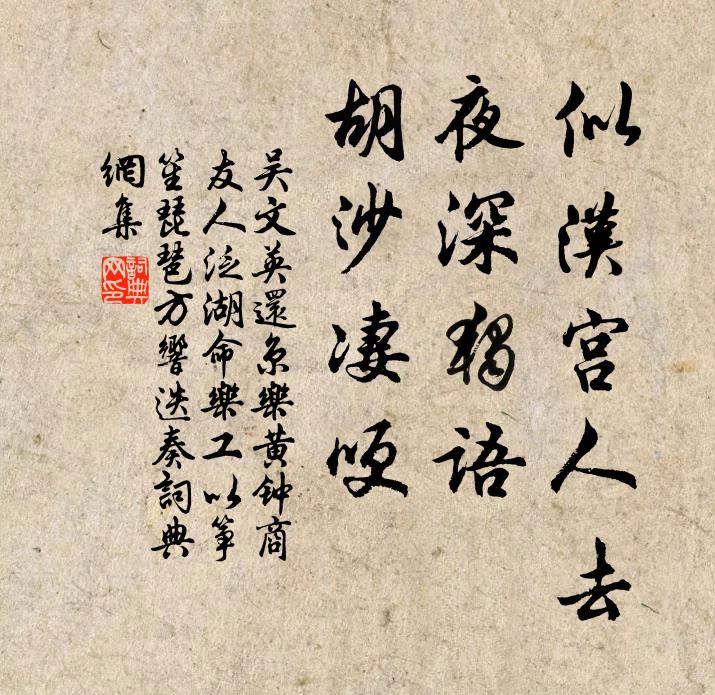 似漢宮人去
夜深獨語
胡沙凄哽
吴文英還京樂黄钟商
友人泛湖命樂工以箏
笙琵琶方響迭奏詞典
網集
詞典
网印